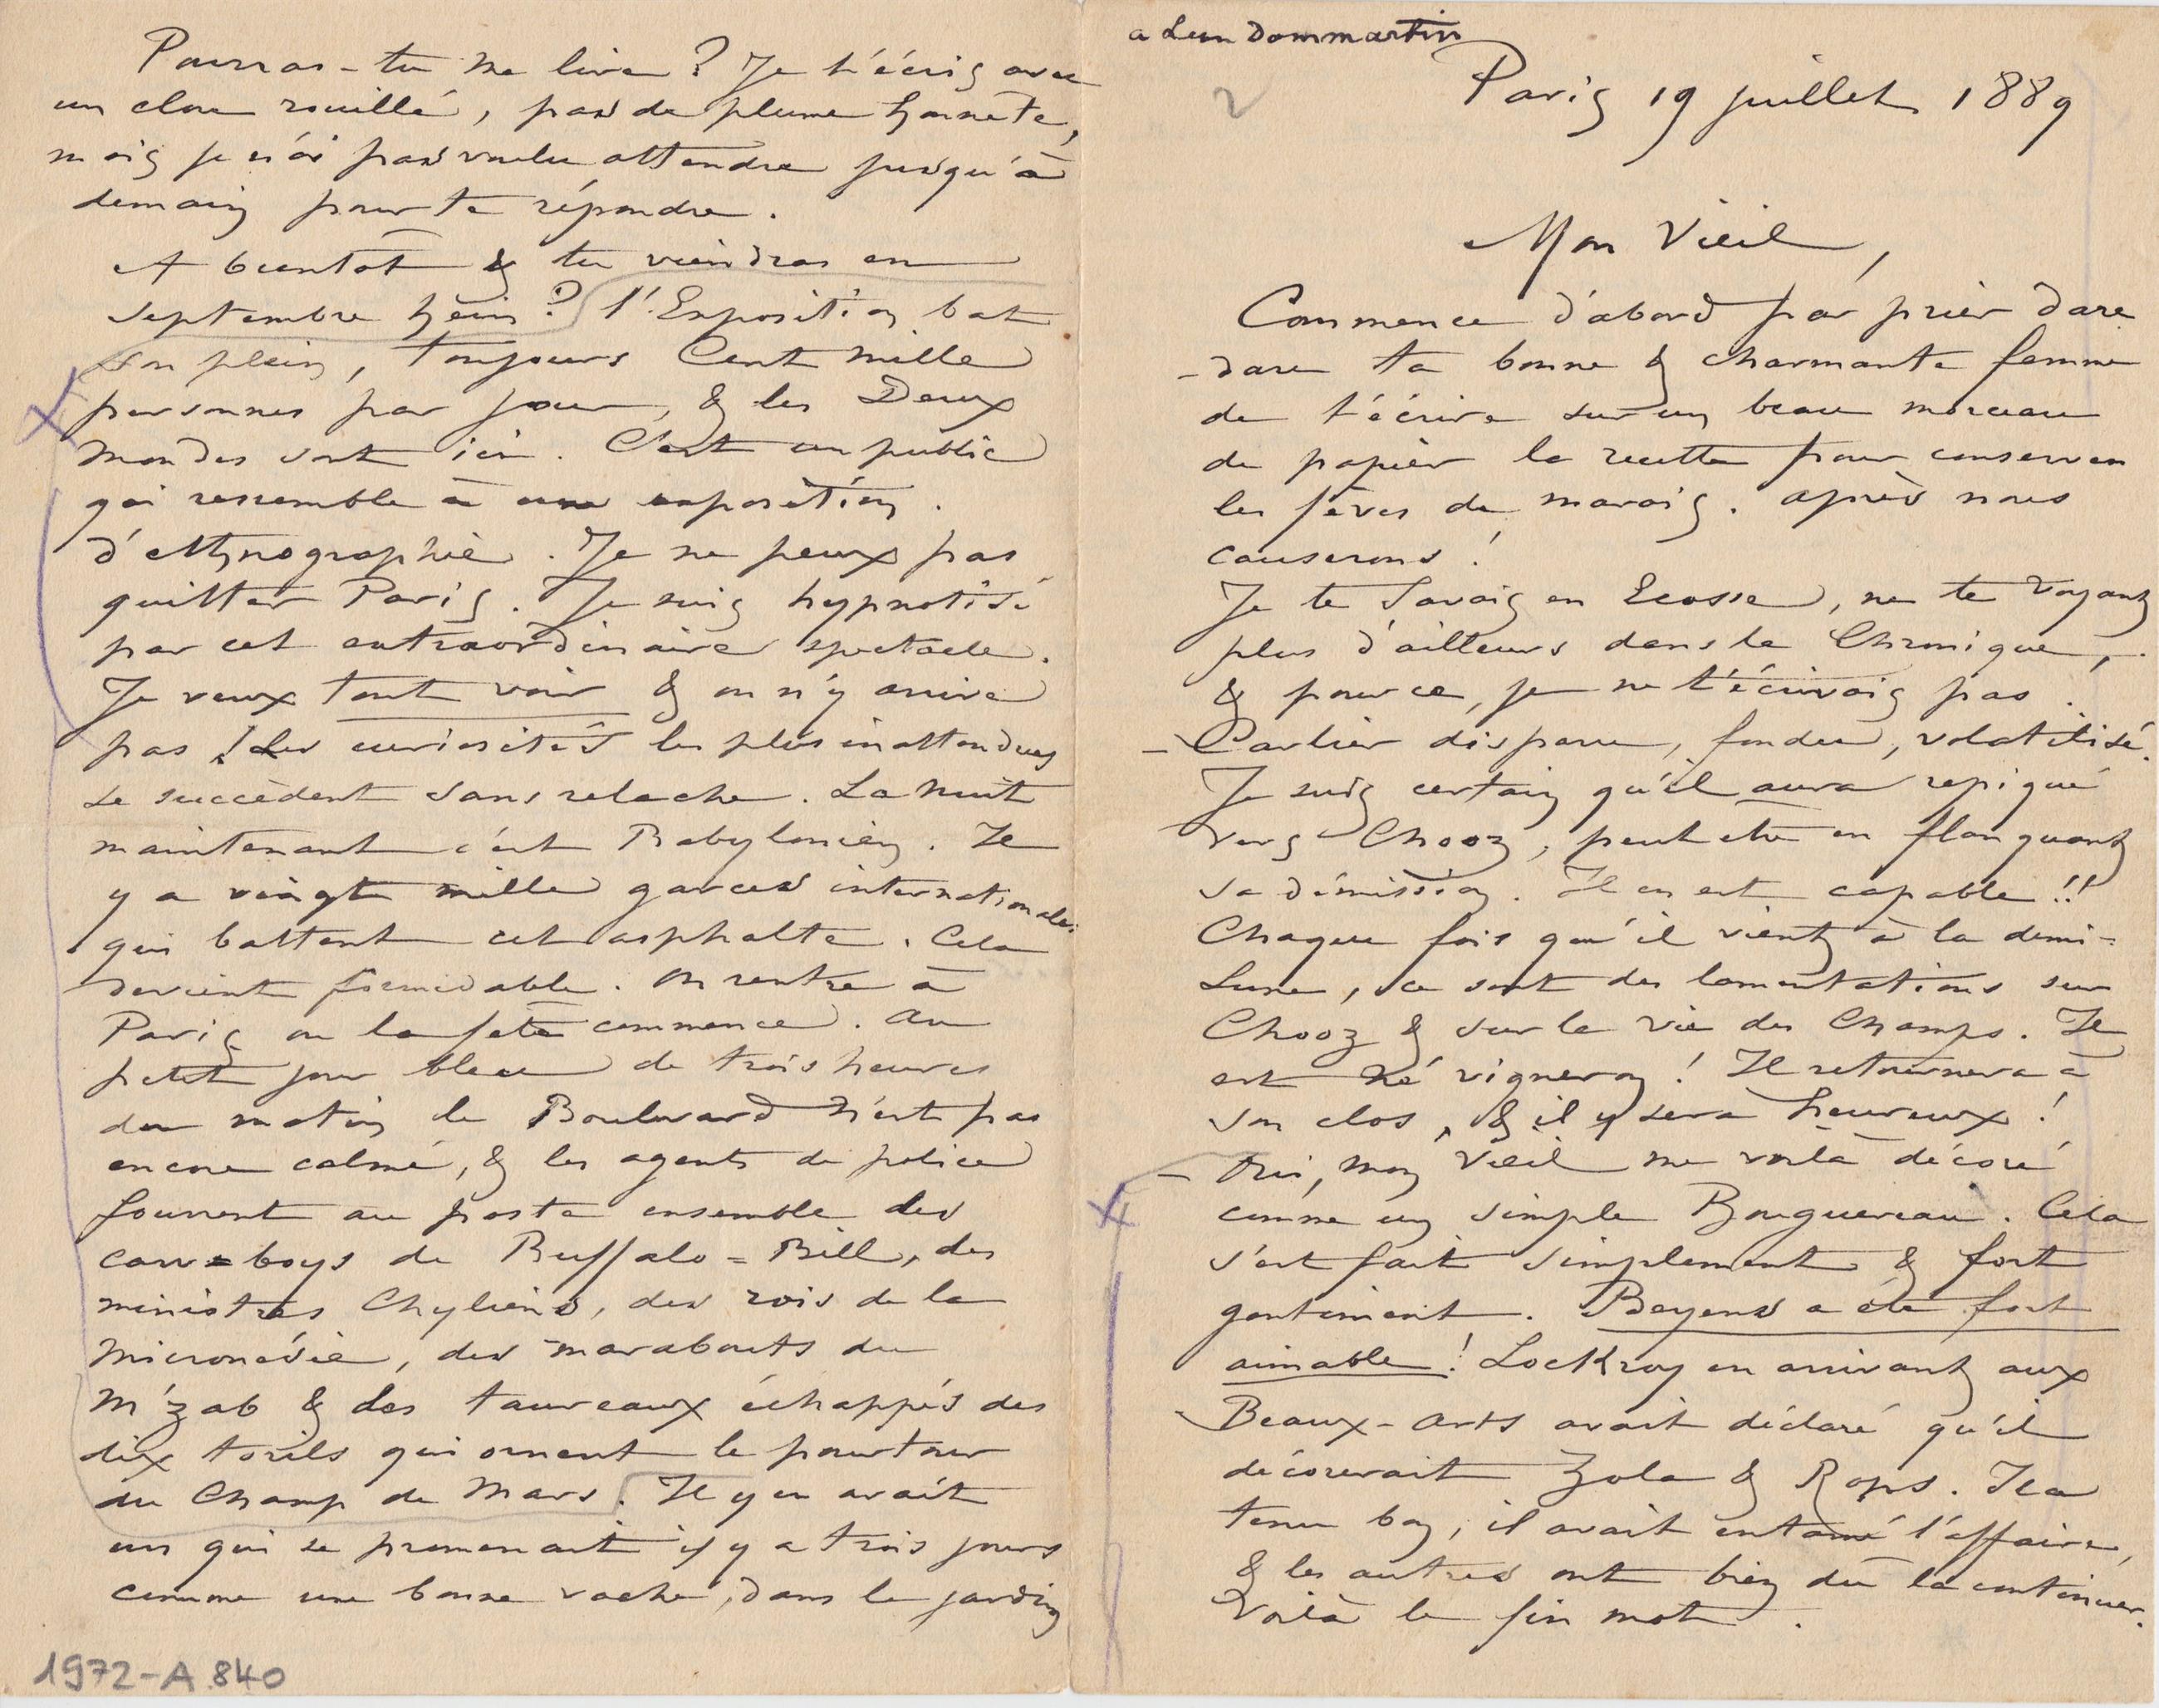 a Leon Dommartin
2
Paris 19 juillet 1889
Mon Vieil,
Commence d'abord par prier dare
-dare ta bonne & charmante femme
de t'écrire sur un beau morceau
de papier la recette pour conserver
les fèves de marais. après nous
causerons !
Je te savais en Ecosse, ne te voyant
plus d'ailleurs dans la Chronique,
& pour ce, je ne t'écrivais pas.
- Carlier disparu, fondu, volatilisé.
Je suis certain qu'il aura repiqué
vers Chooz, peut etre en flanquant
sa démission. Il en est capable !!
Chaque fois qu'il vient à la demi-
Lune, ce sont des lamentations sur
Chooz & sur la vie des Champs. Il
est né vigneron ! Il retournera à
son clos, & il y sera heureux !
- Oui, mon Vieil me voilà décoré
comme un simple Bouguereau. Cela
s'est fait simplement & fort
gentiment. Beyens a été fort
aimable ! Lockroy en arrivant aux
Beaux-Arts avait déclaré qu'il
décorerait Zola & Rops. Il a
tenu bon, il avait entamé l'affaire,
& les autres ont bien du la continuer.
Voilà le fin mot.
Pourras-tu me lire ? Je t'écris avec
un clou rouillé, pas de plume honnête,
mais je n'ai pas voulu attendre jusqu'à
demain pour te répondre.
A bientôt & tu viendras en
septembre hein ? l'Exposition bat
son plein, toujours Cent mille
personnes par jour, & les Deux
Mondes sont ici. C'est un public
qui ressemble à une exposition
d'ethnographie. Je ne peux pas
quitter Paris. Je suis hypnotisé
par cet extraordinaire spectacle.
Je veux tout voir & on n'y arrive
pas ! Les curiosités les plus inattendues
se succèdent sans relache. La Nuit
maintenant c'est Babylonien. Il
y a vingt mille garces internationales
qui battent cet asphalte. Cela
devient formidable. On rentre à
Paris ou la fete commence. Au
petit jour bleu de trois heures
du matin le Boulevard n'est pas
encore calmé, & les agents de police
fourrent au poste ensemble des
cow=boys de Buffalo=Bill, des
ministres Chyliens, des rois de la
Micronésie, des marabouts du
M'zab & des taureaux échappés des
dix torils qui ornent le pourtour
du Champ de Mars. Il y en avait
un qui se promenait il y a trois jours
comme une bonne vache, dans le jardin
1972-A.840